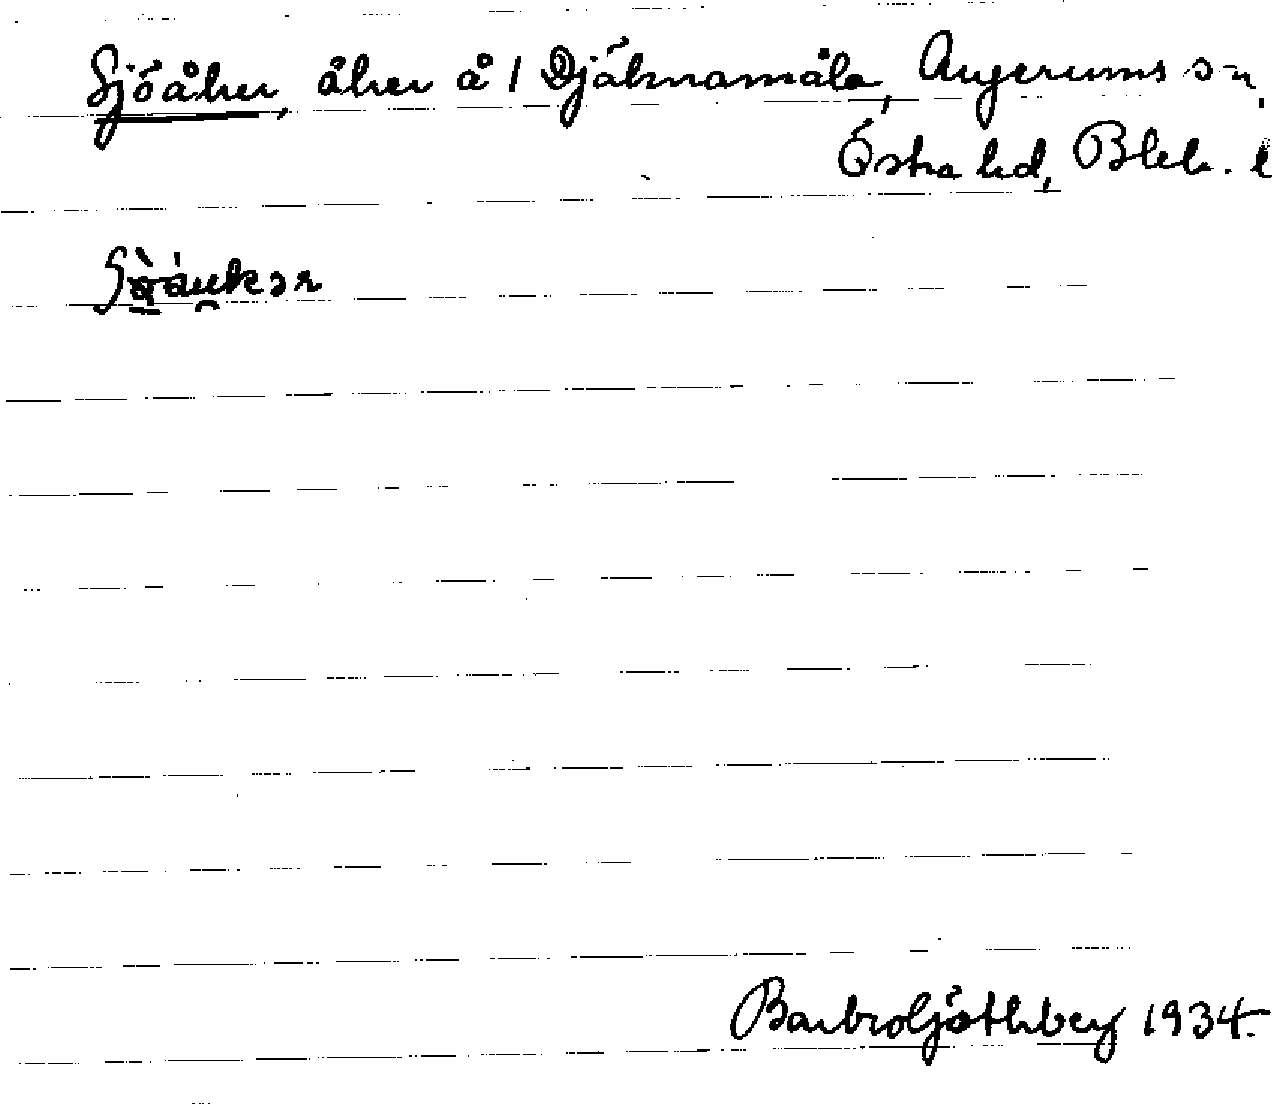 Sjöåker, åker å 1 Djäknamåla, Augerums sn,
Östra hd, Blek. l
Barbro Göthberg 1934.